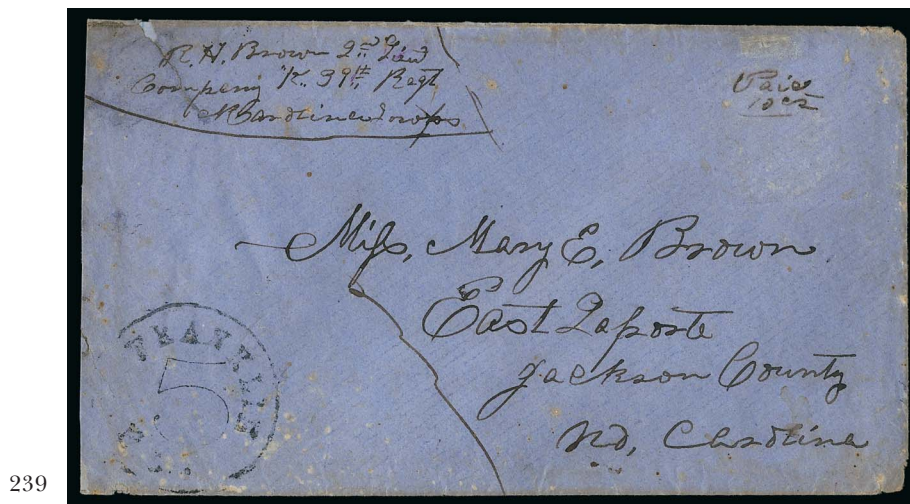 R. H. Brown 2nd Lieut
Company "K. 39th, Regt
N Carolina Troops
Paid
10 cts
Miss, Mary E, Brown
East Laporte
Jackson County
No, Carolina
FRANKLIN
5
239